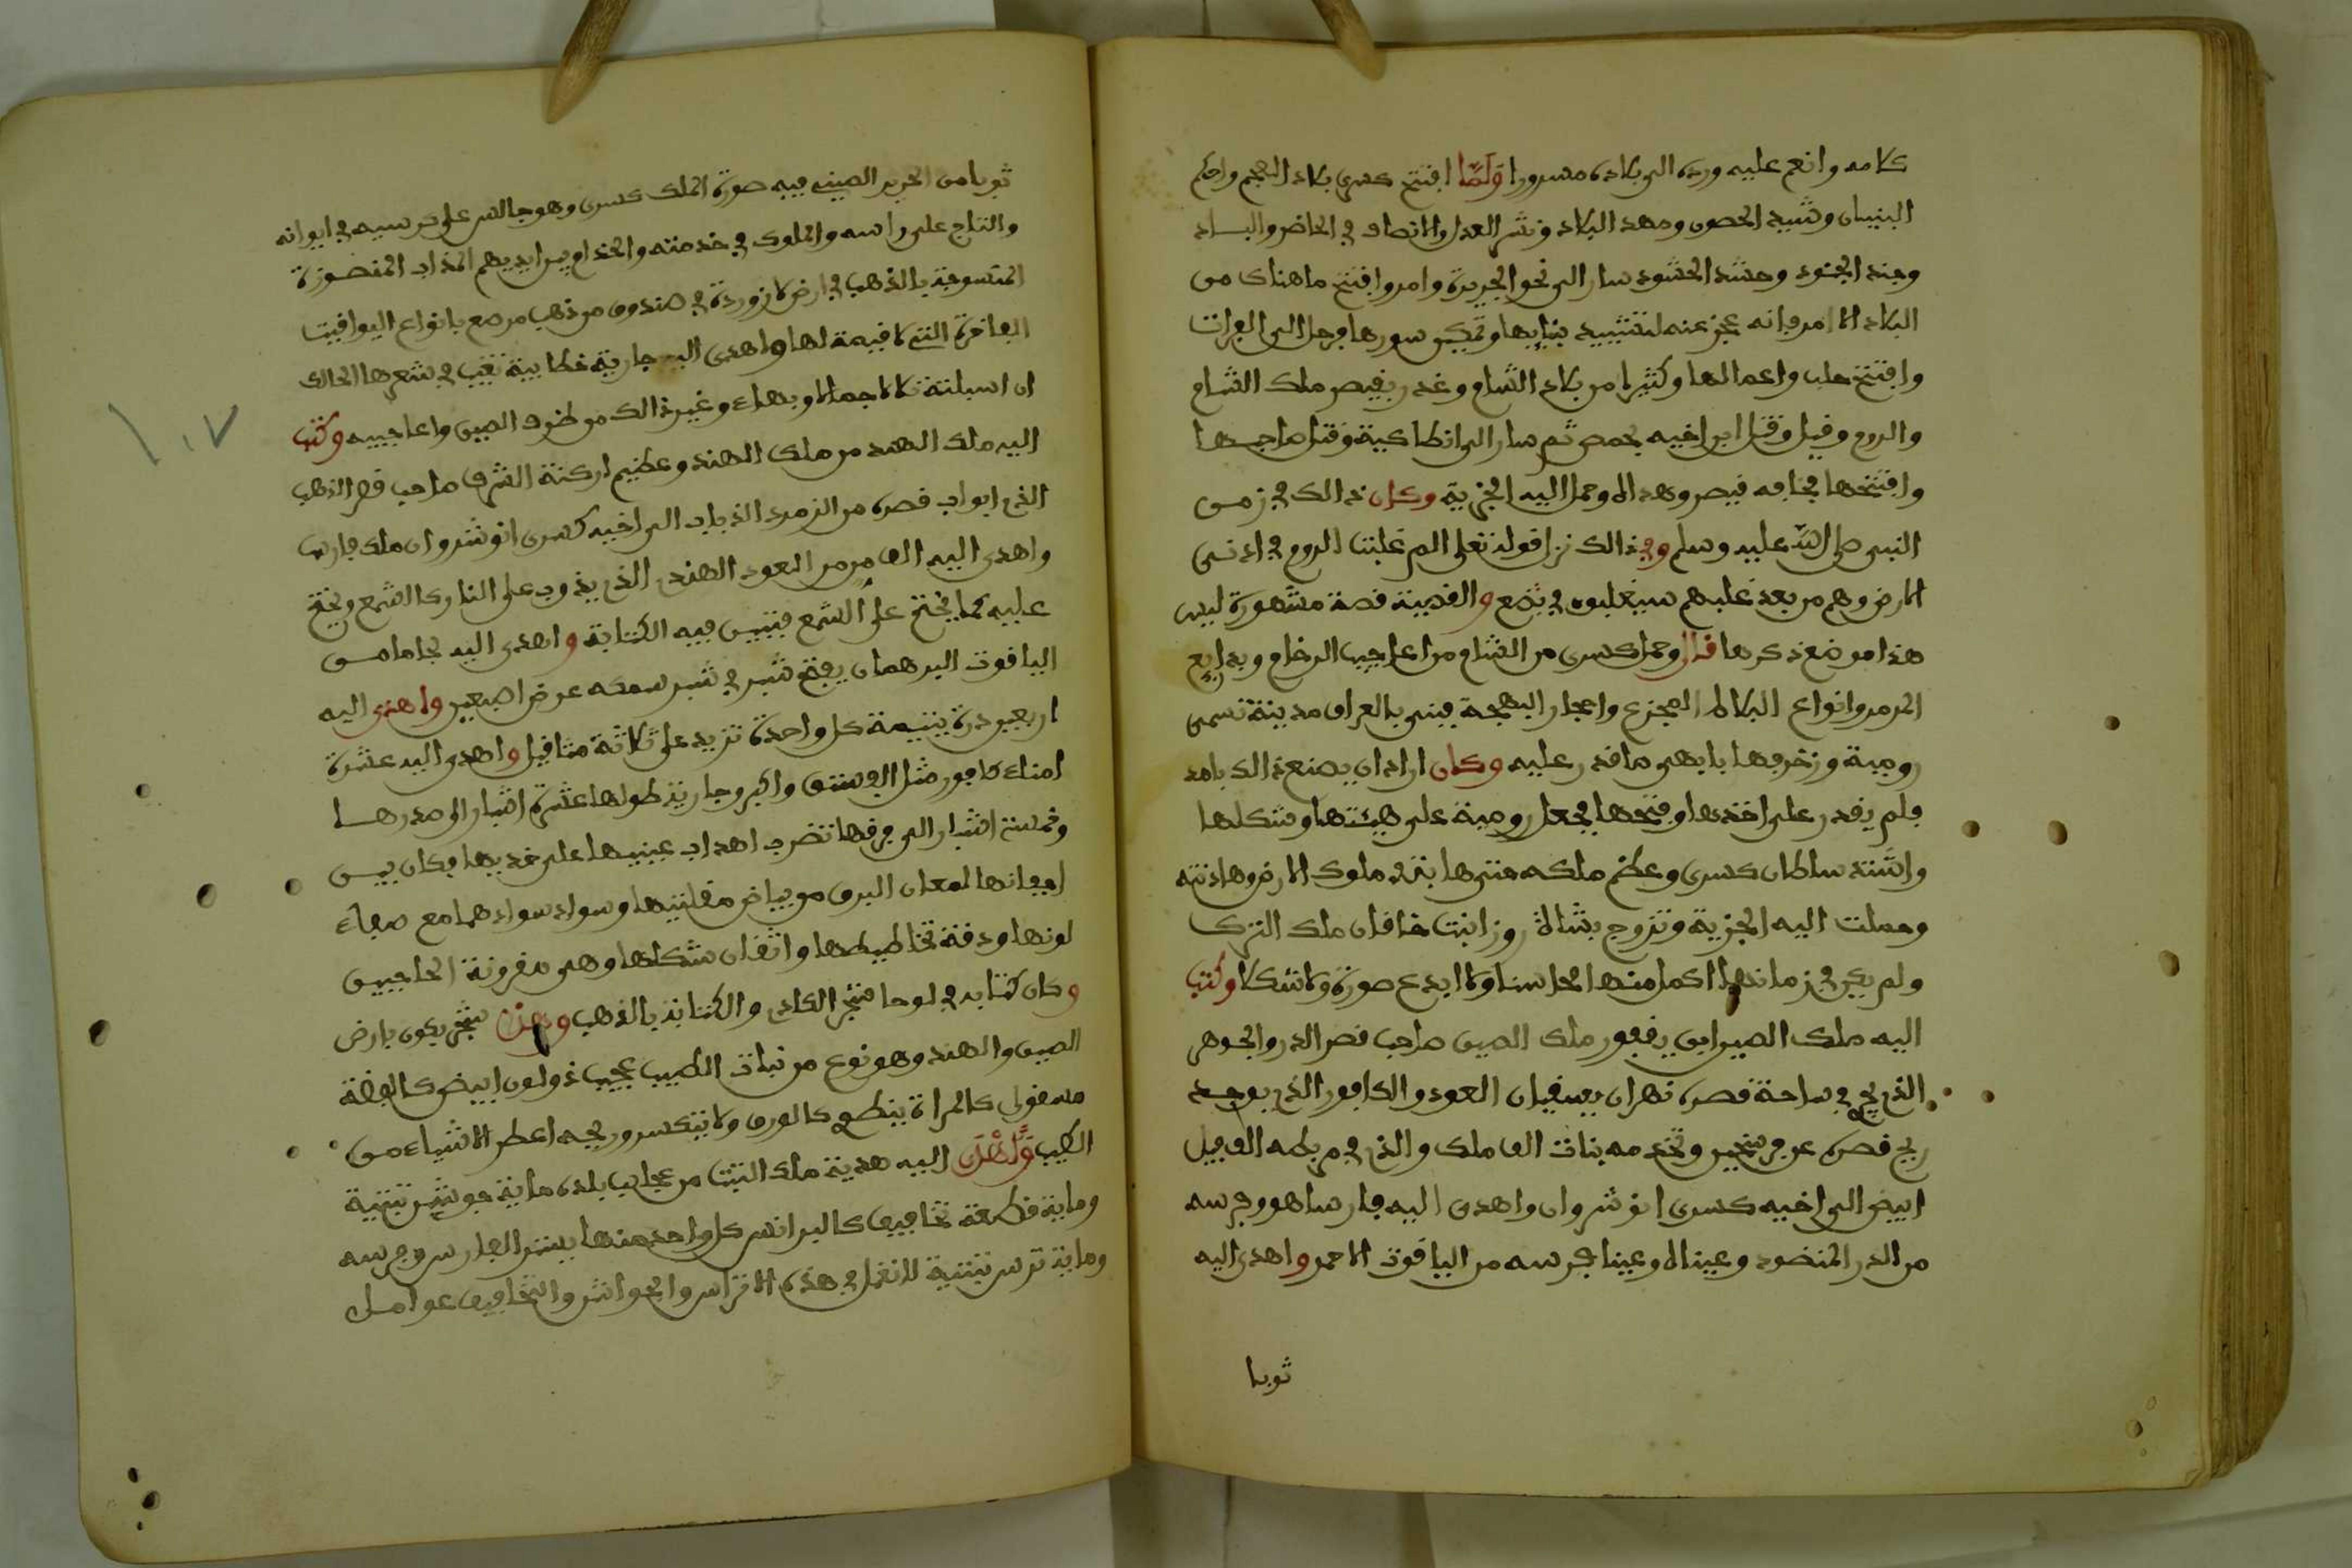 كلامه وانعم عليه ورده الى بلاده مسرورا ولما افتتح كسرى بلاد العجم واحكم
البنيان وشيد الحصون ومهد البلاد ونشر العدل والانصاف في الحاضر والباد
وجند الجنود وحشد الحشود سار الى نحو الجزيرة وامد وافتتح ماهناك من
البلاد الا امد فانه عجز عنه لتشييد بنايها وتمكين سورها فرحل الى الفرات
وافتتح حلب واعمالها وكثيرا من بلاد الشام وغدر بقيصر ملك الشام
والروم وقيل وقتل ابن اخيه بحمص ثم سار الى انطاكية وقتل صاحبها
وافتتحها فخافه قيصر وهداه وحمل اليه الجزية وكان ذالك في زمن
النبي صلى الله عليه وسلم وفي ذالك نزل قوله تعلى الم غلبت الروم في ادنى
الارض وهم من بعد غلبهم سيغلبون في بضع والقضية قصة مشهورة ليس
هذا موضع ذكرها قال وحمل كسرى من الشام من اعاجيب الرخام وبدايع
المرمر وانواع البلاط المجزع واحجار البهجة فبنى بالعراق مدينة تسمى
رومية وزخرفها بابهى ما قدر عليه وكان اراد ان يصنع ذالك بامد
فلم يقدر على اخذها وفتحها فجعل رومية على هيئتها وشكلها
واشتد سلطان كسرى وعظم ملكه حتى هابته ملوك الارض وهادنته
وحملت اليه الجزية وتزوج بشاه روز ابنت خاقان ملك الترك
ولم يكن في زمانها اكمل منها محاسنا ولا ابدع صورة ولا شكلا وكتب
اليه ملك الصين ابن يغفور ملك الصين صاحب قصر الدر والجوهر
الذي يجري في ساحة قصره نهران يسقيان العود والكافور الذي يوجد
ريح قصره عن فرسخين وتخدمه بنات الف ملك والذي في مربطه الف فيل
ابيض الى اخيه كسرى انوشروان واهدى اليه فارسا هو وفرسه
من الدر المنضود وعيناه وعينا فرسه من الياقوت الاحمر واهدى اليه
ثوبا
ثوبا من الحرير الصيني فيه صورة الملك كسرى وهو جالس على كرسيه في ايوانه
والتاج على راسه والملوك في خدمته والخدام بين ايديهم المذاب المنضورة
المنسوجة بالذهب في ارض لازوردة في صندوق من ذهب مرصع بانواع اليواقيت
الفاخرة التي لا قيمة لها واهدى اليه جارية خطايية تغيب في شعرها الحالك
ان اسبلته تلالا جمالا وبهاء وغير ذالك من طرف الصين واعاجيبه وكتب
اليه ملك الهند من ملك الهند وعظيم اركنة الشرق صاحب قصر الذهب
الذي ابواب قصره من الزمرد الذباب الى اخيه كسرى انوشروان ملك فارس
واهدى اليه الف من من العود الهندي الذي يذوب على النار كالشمع ويختم
عليه كما يختم على الشمع فتبين فيه الكتابة واهدى اليه جاما من
الياقوت البرهمان يفتح شبر في شبر سمكه عرض اصبعين واهدى اليه
اربعين درة يتيمة كل واحدة تزيد على ثلاثة مثاقيل واهدى اليه عشرة
امناء كافور مثل الفستق واكبر وجارية طولها عشرة اشبار الى صدرها
وخمسة اشبار الى فرقها تضرب اهداب عينيها على خديها وكان بين
اجفانها لمعان البرق من بياض مقلتيها وسواد سوادهما مع صفاء
لونها ودقة تخاطيطها واتقان شكلها وهي مقرونة الحاجبين
وكان كتابه في لوحا شجر الكادي والكتابة بالذهب وهذا شجر يكون بارض
الصين والهند وهو نوع من نبات الطيب عجيب ذو لون ابيض كالفضة
مصقول كالمراة ينطوي كالورق ولا يتكسر وريحه اعطر الاشياء من
الطيب واهدى اليه هدية ملك التبت من عجايب بلده ماية جوشن تبتية
وماية قطعة تخافيف كالبرانس كل واحد منها يستر الفارس وفرسه
وماية ترس تبتية لا تعمل في هذه الاتراس والجواشن والتخافيف عوامل
١٠٧